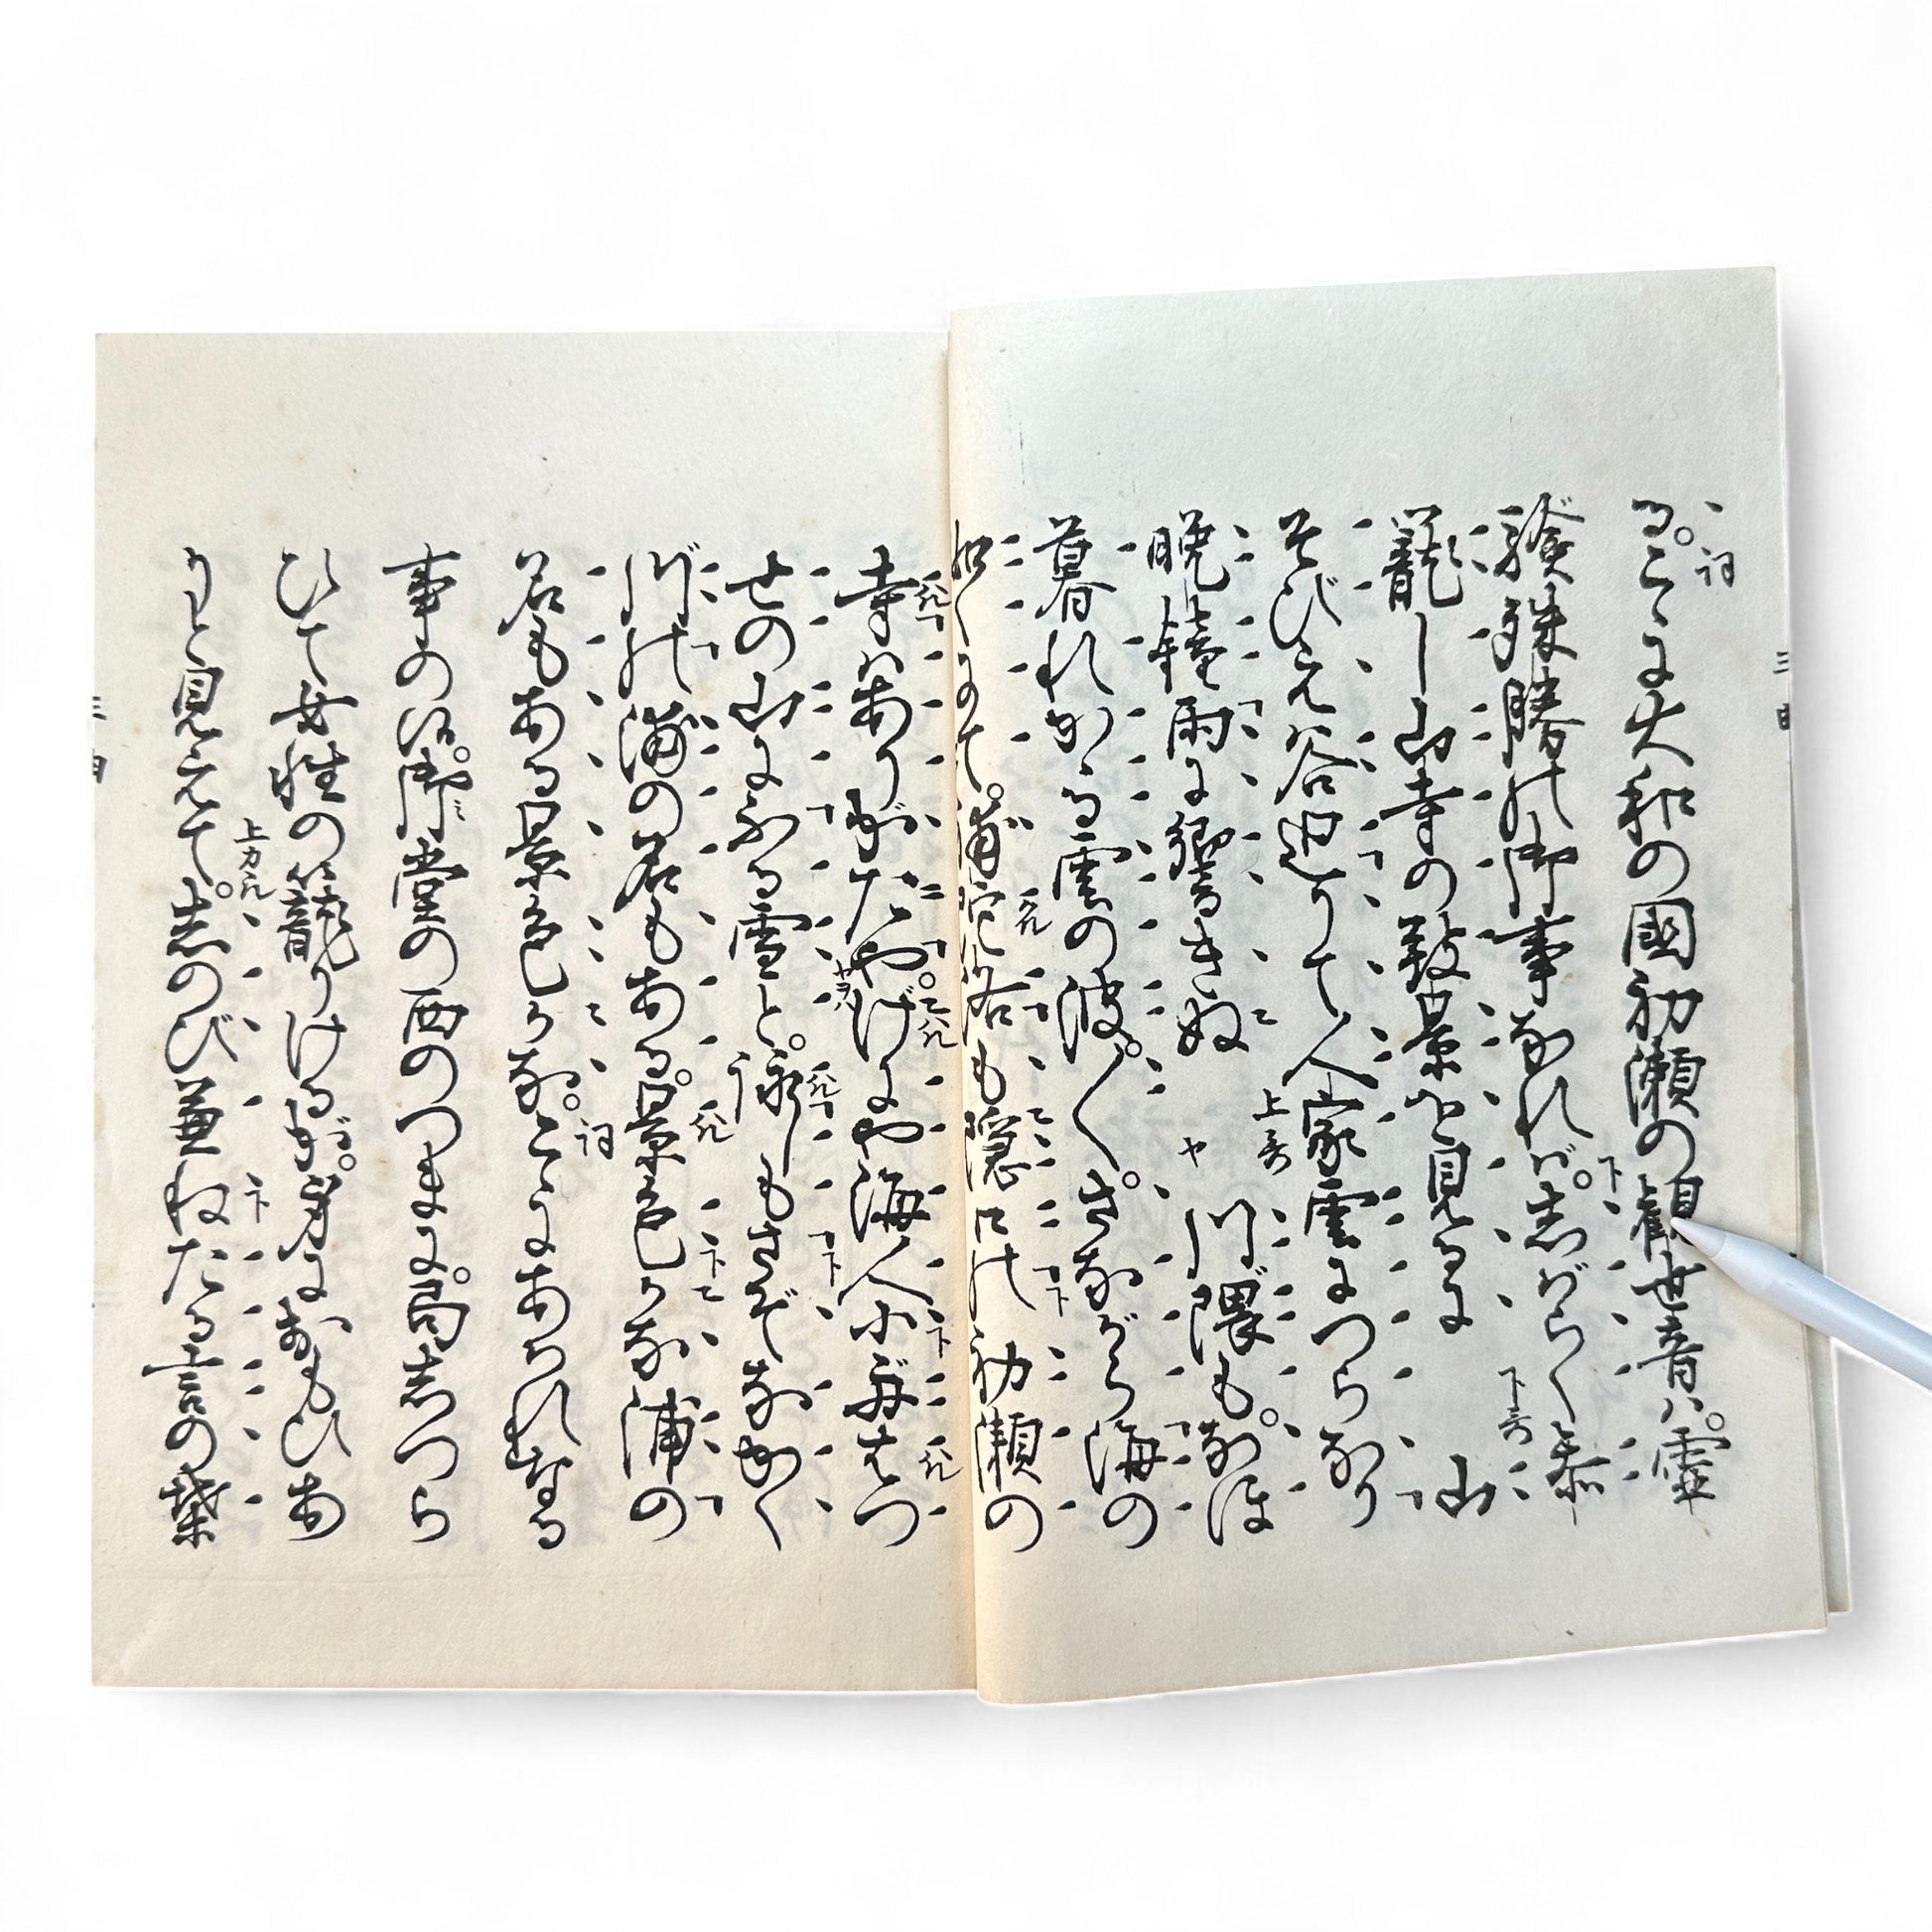 る。こゝに大和の國初瀬の觀世音ハ。霊
驗殊勝の御事なれば。志ばらく参
籠し山寺の致景を見るに 山
そびえ谷廻りて人家雲につらなり
晩鐘雨に響きぬ 川隈も。なほ
暮れかゝる雲の波。く。さながら海の
如くにて。補陀落も隠口の初瀬の
寺ハありがたや。げにや海人小舟はつ
せの山にふる雪と。詠じもさぞな
川の浦の名もある。景色かな浦の
名もある景色かな。こゝにあはれなる
事の候。御堂の西のつまに。局志つら
ひて女性の籠りけるが。身におもひあ
りと見えて。志のび兼ねたる言の葉